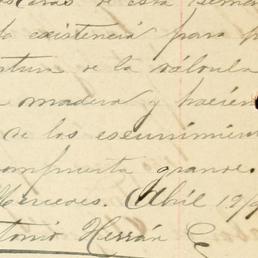 de esta
existencia para
de la válvula
madera y
de los escurrimien
compuerta grande.
Mercedes. Abril 19/
tonio Herrán E